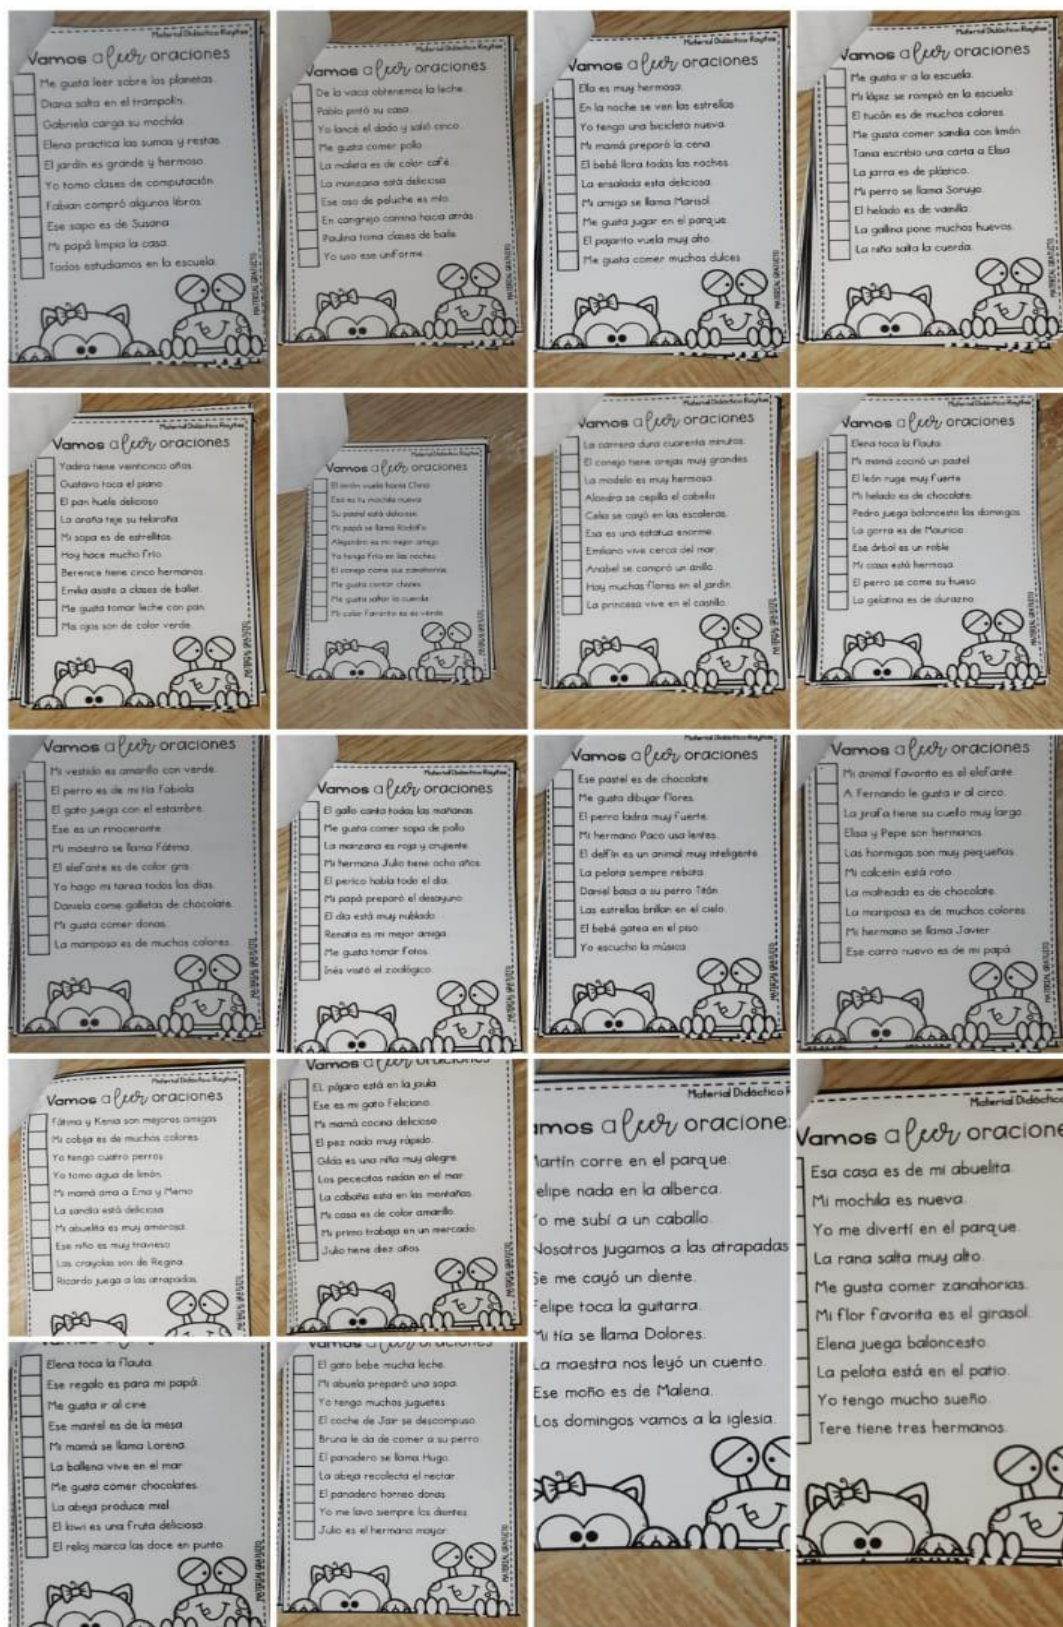 Material Didáctico Rayitas
Vamos a leer oraciones
Me gusta leer sobre los planetas.
Diana salta en el trampolín.
Gabriela carga su mochila.
Elena practica las sumas y restas.
El jardín es grande y hermoso.
Yo tomo clases de computación.
Fabian compró algunos libros.
Ese sapo es de Susana
Mi papá limpia la casa.
Todos estudiamos en la escuela.
MATERIAL GRATUITO
Material Didáctico Rayitas
Vamos a leer oraciones
De la vaca obtenemos la leche.
Pablo pintó su casa.
Yo lancé el dado y salió cinco.
Me gusta comer pollo
La maleta es de color café.
La manzana está deliciosa
Ese oso de peluche es mío.
En cangrejo camina hacia atrás.
Paulina toma clases de baile.
Yo uso ese uniforme
MATERIAL GRATUITO
Material Didáctico Rayitas
Vamos a leer oraciones
Ella es muy hermosa.
En la noche se ven las estrellas
Yo tengo una bicicleta nueva.
Mi mamá preparó la cena
El bebé llora todas las noches.
La ensalada esta deliciosa
Mi amiga se llama Marisol.
Me gusta jugar en el parque.
El pajarito vuela muy alto.
Me gusta comer muchos dulces
MATERIAL GRATUITO
Material Didáctico Rayitas
Vamos a leer oraciones
Me gusta ir a la escuela.
Mi lápiz se rompió en la escuela
El tucán es de muchos colores.
Me gusta comer sandía con limón
Tania escribio una carta a Elisa
La jarra es de plástico.
Mi perro se llama Soruyo.
El helado es de vainilla.
La gallina pone muchos huevos.
La niña salta la cuerda.
MATERIAL GRATUITO
Material Didáctico Rayitas
Vamos a leer oraciones
Yadira tiene veinticinco años.
Gustavo toca el piano
El pan huele delicioso
La araña teje su telaraña
Mi sopa es de estrellitas.
Hoy hace mucho frío.
Berenice tiene cinco hermanos.
Emilia asiste a clases de ballet.
Me gusta tomar leche con pan.
Mis ojos son de color verde.
MATERIAL GRATUITO
Material Didáctico Rayitas
Vamos a leer oraciones
El avión vuela hacia China.
Esa es tu mochila nueva
Su pastel está delicioso
Mi papá se llama Rodolfo
Alejandro es mi mejor amigo
Yo tengo frío en las noches
El conejo come sus zanahorias.
Me gusta contar chistes
Me gusta saltar la cuerda
Mi color favorito es es verde
MATERIAL GRATUITO
Material Didáctico Rayitas
Vamos a leer oraciones
La carrera dura cuarenta minutos.
El conejo tiene orejas muy grandes
La modelo es muy hermosa.
Alondra se cepilla el cabello
Celia se cayó en las escaleras.
Esa es una estatua enorme.
Emiliano vive cerca del mar.
Anabel se compró un anillo.
Hay muchas flores en el jardín
La princesa vive en el castillo.
MATERIAL GRATUITO
Material Didáctico Rayitas
Vamos a leer oraciones
Elena toca la flauta.
Mi mamá cocinó un pastel
El león ruge muy fuerte
Mi helado es de chocolate.
Pedro juega baloncesto los domingos
La gorra es de Mauricio.
Ese árbol es un roble
Mi casa está hermosa.
El perro se come su hueso
La gelatina es de durazno
MATERIAL GRATUITO
Vamos a leer oraciones
Mi vestido es amarillo con verde.
El perro es de mi tía Fabiola.
El gato juega con el estambre.
Ese es un rinoceronte.
Mi maestra se llama Fátima.
El elefante es de color gris.
Yo hago mi tarea todos los días.
Daniela come galletas de chocolate.
Mi gusta comer donas.
La mariposa es de muchos colores.
MATERIAL GRATUITO
Material Didáctico Rayitas
Vamos a leer oraciones
El gallo canta todas las mañanas
Me gusta comer sopa de pollo
La manzana es roja y crujiente
Mi hermano Julio tiene ocho años
El perico habla todo el día.
Mi papá preparó el desayuno
El día está muy nublado
Renata es mi mejor amiga
Me gusta tomar fotos.
Inés visitó el zoológico.
MATERIAL GRATUITO
Material Didáctico Rayitas
Vamos a leer oraciones
Ese pastel es de chocolate
Me gusta dibujar flores.
El perro ladra muy fuerte.
Mi hermano Paco usa lentes.
El delfín es un animal muy inteligente
La pelota siempre rebota.
Daniel basa a su perro Titán
Las estrellas brillan en el cielo.
El bebé gatea en el piso.
Yo escucho la música.
MATERIAL GRATUITO
Vamos a leer oraciones
Mi animal favorito es el elefante
A Fernando le gusta ir al circo.
La jirafa tiene su cuello muy largo
Elisa y Pepe son hermanos
Las hormigas son muy pequeñas.
Mi calcetín está roto
La malteada es de chocolate.
La mariposa es de muchos colores
Mi hermano se llama Javier.
Ese carro nuevo es de mi papá.
MATERIAL GRATUITO
Material Didáctico Rayitas
Vamos a leer oraciones
Fátima y Kenia son mejores amigas
Mi cobija es de muchos colores
Yo tengo cuatro perros
Yo tomo agua de limón.
Mi mamá ama a Ema y Memo
La sandía está deliciosa
Mi abuelita es muy amorosa.
Ese niño es muy travieso
Las crayolas son de Regina
Ricardo juega a las atrapadas
MATERIAL GRATUITO
Vamos a leer oraciones
El pájaro está en la jaula.
Ese es mi gato Feliciano.
Mi mamá cocina delicioso
El pez nada muy rápido.
Gilda es una niña muy alegre.
Los pececitos nadan en el mar
La cabaña esta en las montañas.
Mi casa es de color amarillo.
Mi primo trabaja en un mercado.
Julio tiene diez años
MATERIAL GRATUITO
Material Didáctico R
amos a leer oracione
Martín corre en el parque.
elipe nada en la alberca.
Yo me subí a un caballo.
Nosotros jugamos a las atrapadas
Se me cayó un diente.
Felipe toca la guitarra.
Mi tía se llama Dolores.
La maestra nos leyó un cuento.
Ese moño es de Malena.
Los domingos vamos a la iglesia.
Material Didáctic
Vamos a leer oracione
Esa casa es de mi abuelita.
Mi mochila es nueva.
Yo me divertí en el parque.
La rana salta muy alto.
Me gusta comer zanahorias.
Mi flor favorita es el girasol.
Elena juega baloncesto.
La pelota está en el patio.
Yo tengo mucho sueño.
Tere tiene tres hermanos.
Vamos a leer oraciones
Elena toca la flauta.
Ese regalo es para mi papá.
Me gusta ir al cine
Ese mantel es de la mesa
Mi mamá se llama Lorena
La ballena vive en el mar
Me gusta comer chocolates
La abeja produce miel.
El kiwi es una fruta deliciosa.
El reloj marca las doce en punto.
MATERIAL GRATUITO
Vamos a leer oraciones
El gato bebe mucha leche.
Mi abuela preparó una sopa.
Yo tengo muchos juguetes
El coche de Jair se descompuso.
Bruna le da de comer a su perro.
El panadero se llama Hugo.
La abeja recolecta el nectar
El panadero horneo donas
Yo me lavo siempre los dientes
Julio es el hermano mayor.
MATERIAL GRATUITO